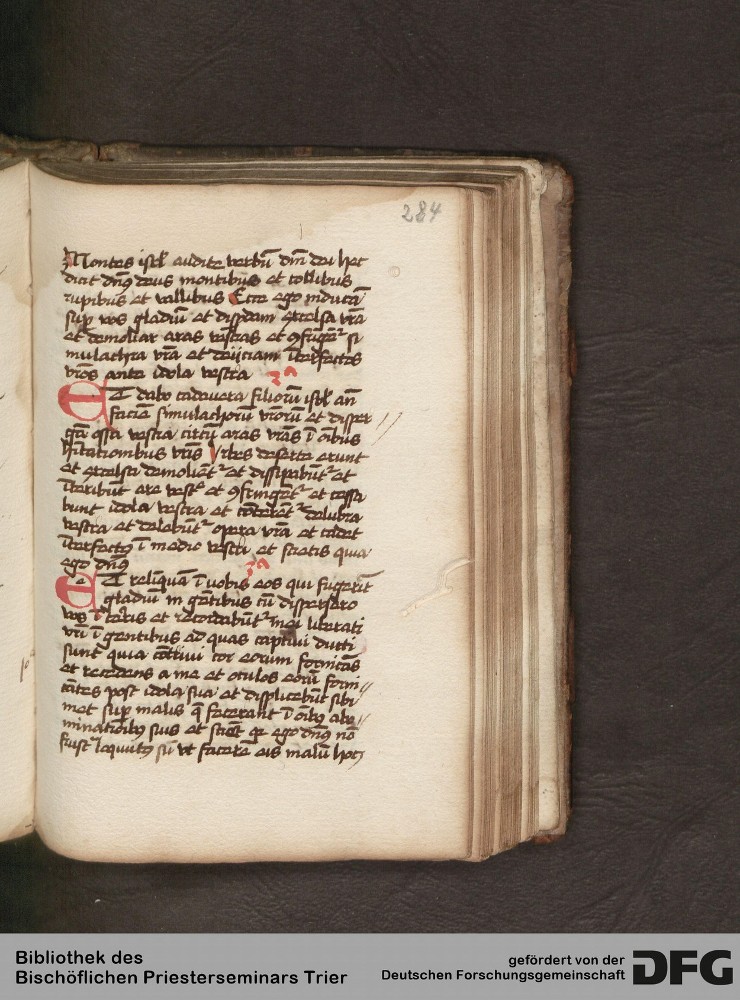 284
Montes isrl audite verbū dn̄i dei hec
dicit dn̄s deus montibus et collibus
rupibus et vallibus Ecce ego inducā
sup vos gladiū et disꝑdam excelsa vrā
et demoliar aras vestras et ꝯfringētr si
mulachra vrā et deiiciam īterfectos
vrōs ante idola vestra 2a
Et dabo cadavera filiorū isrl an̄
faciē simulachrorū vrōrū et disper
gā ossa vestra circū aras vrās ī oībus
hītationibus vrīs Urbes deserte erunt
et excelsa demolientr et dissipabūtr et
īteribūt are vestre et ꝯfringētr et cessa
bunt idola vestra et cōterētr delubra
vestra et delebūtr opera vrā et cadet
īterfectꝰ ī medio vestri et scietis quia
ego dn̄s 3a
Et relīquam ī vobis eos qui fugerīt
gladiū in gētibus cū dispersero
vos ī terris et recordabūtr mei liberati
vrī ī gentibus ad quas captivi ducti
sunt quia cōtrivi cor eorum fornicās
et recedens a me et oculos eorū forni
cātes post idola sua et displicebūt sibi
met sup malis q̄ fecerant ī oībꝰ abo
minationibꝰ suis et sciēt qꝛ ego dn̄s nō
frustra loquutꝰ sū vt facerē eis malū hec
Bibliothek des
Bischöflichen Priesterseminars Trier
gefördert von der
Deutschen Forschungsgemeinschaft
DFG